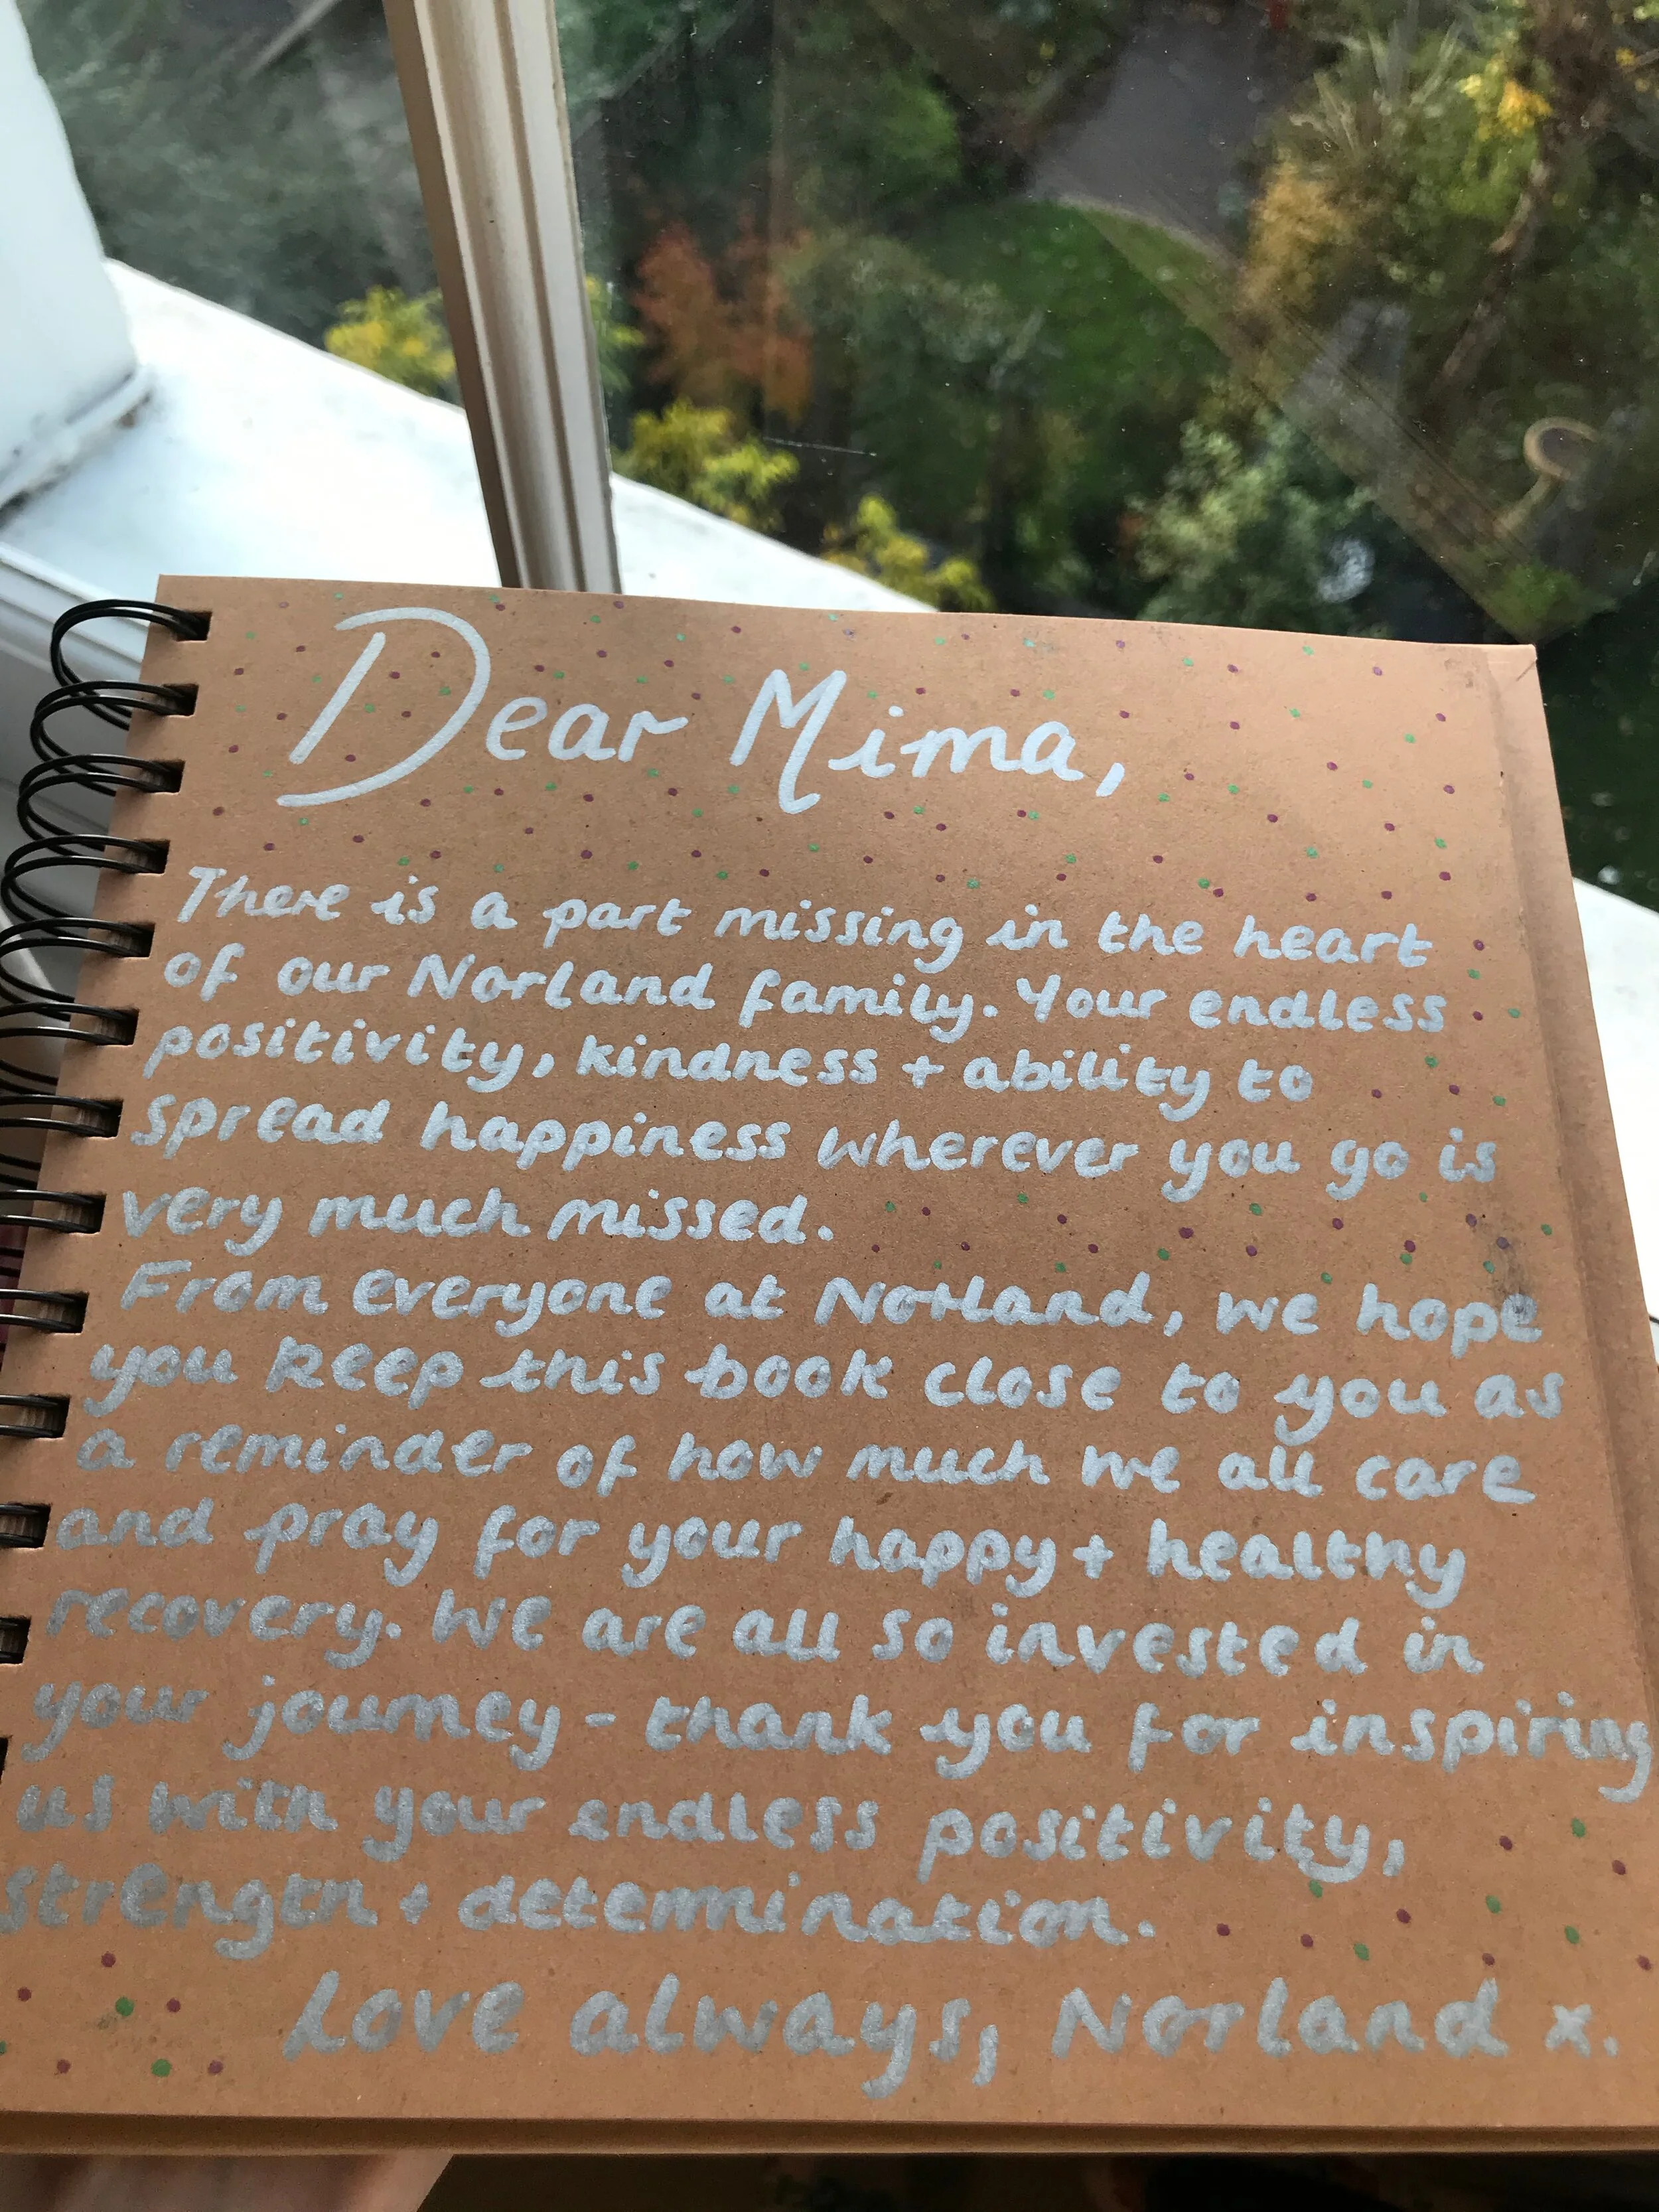 Dear Mima,
There is a part missing in the heart
of our Norland family. Your endless
positivity, kindness + ability to
spread happiness wherever you go is
very much missed.
From everyone at Norland, we hope
you keep this book close to you as
a reminder of how much we all care
and pray for your happy + healthy
recovery. We are all so invested in
your journey - thank you for inspiring
us with your endless positivity,
strength + determination.
Love always, Norland x.